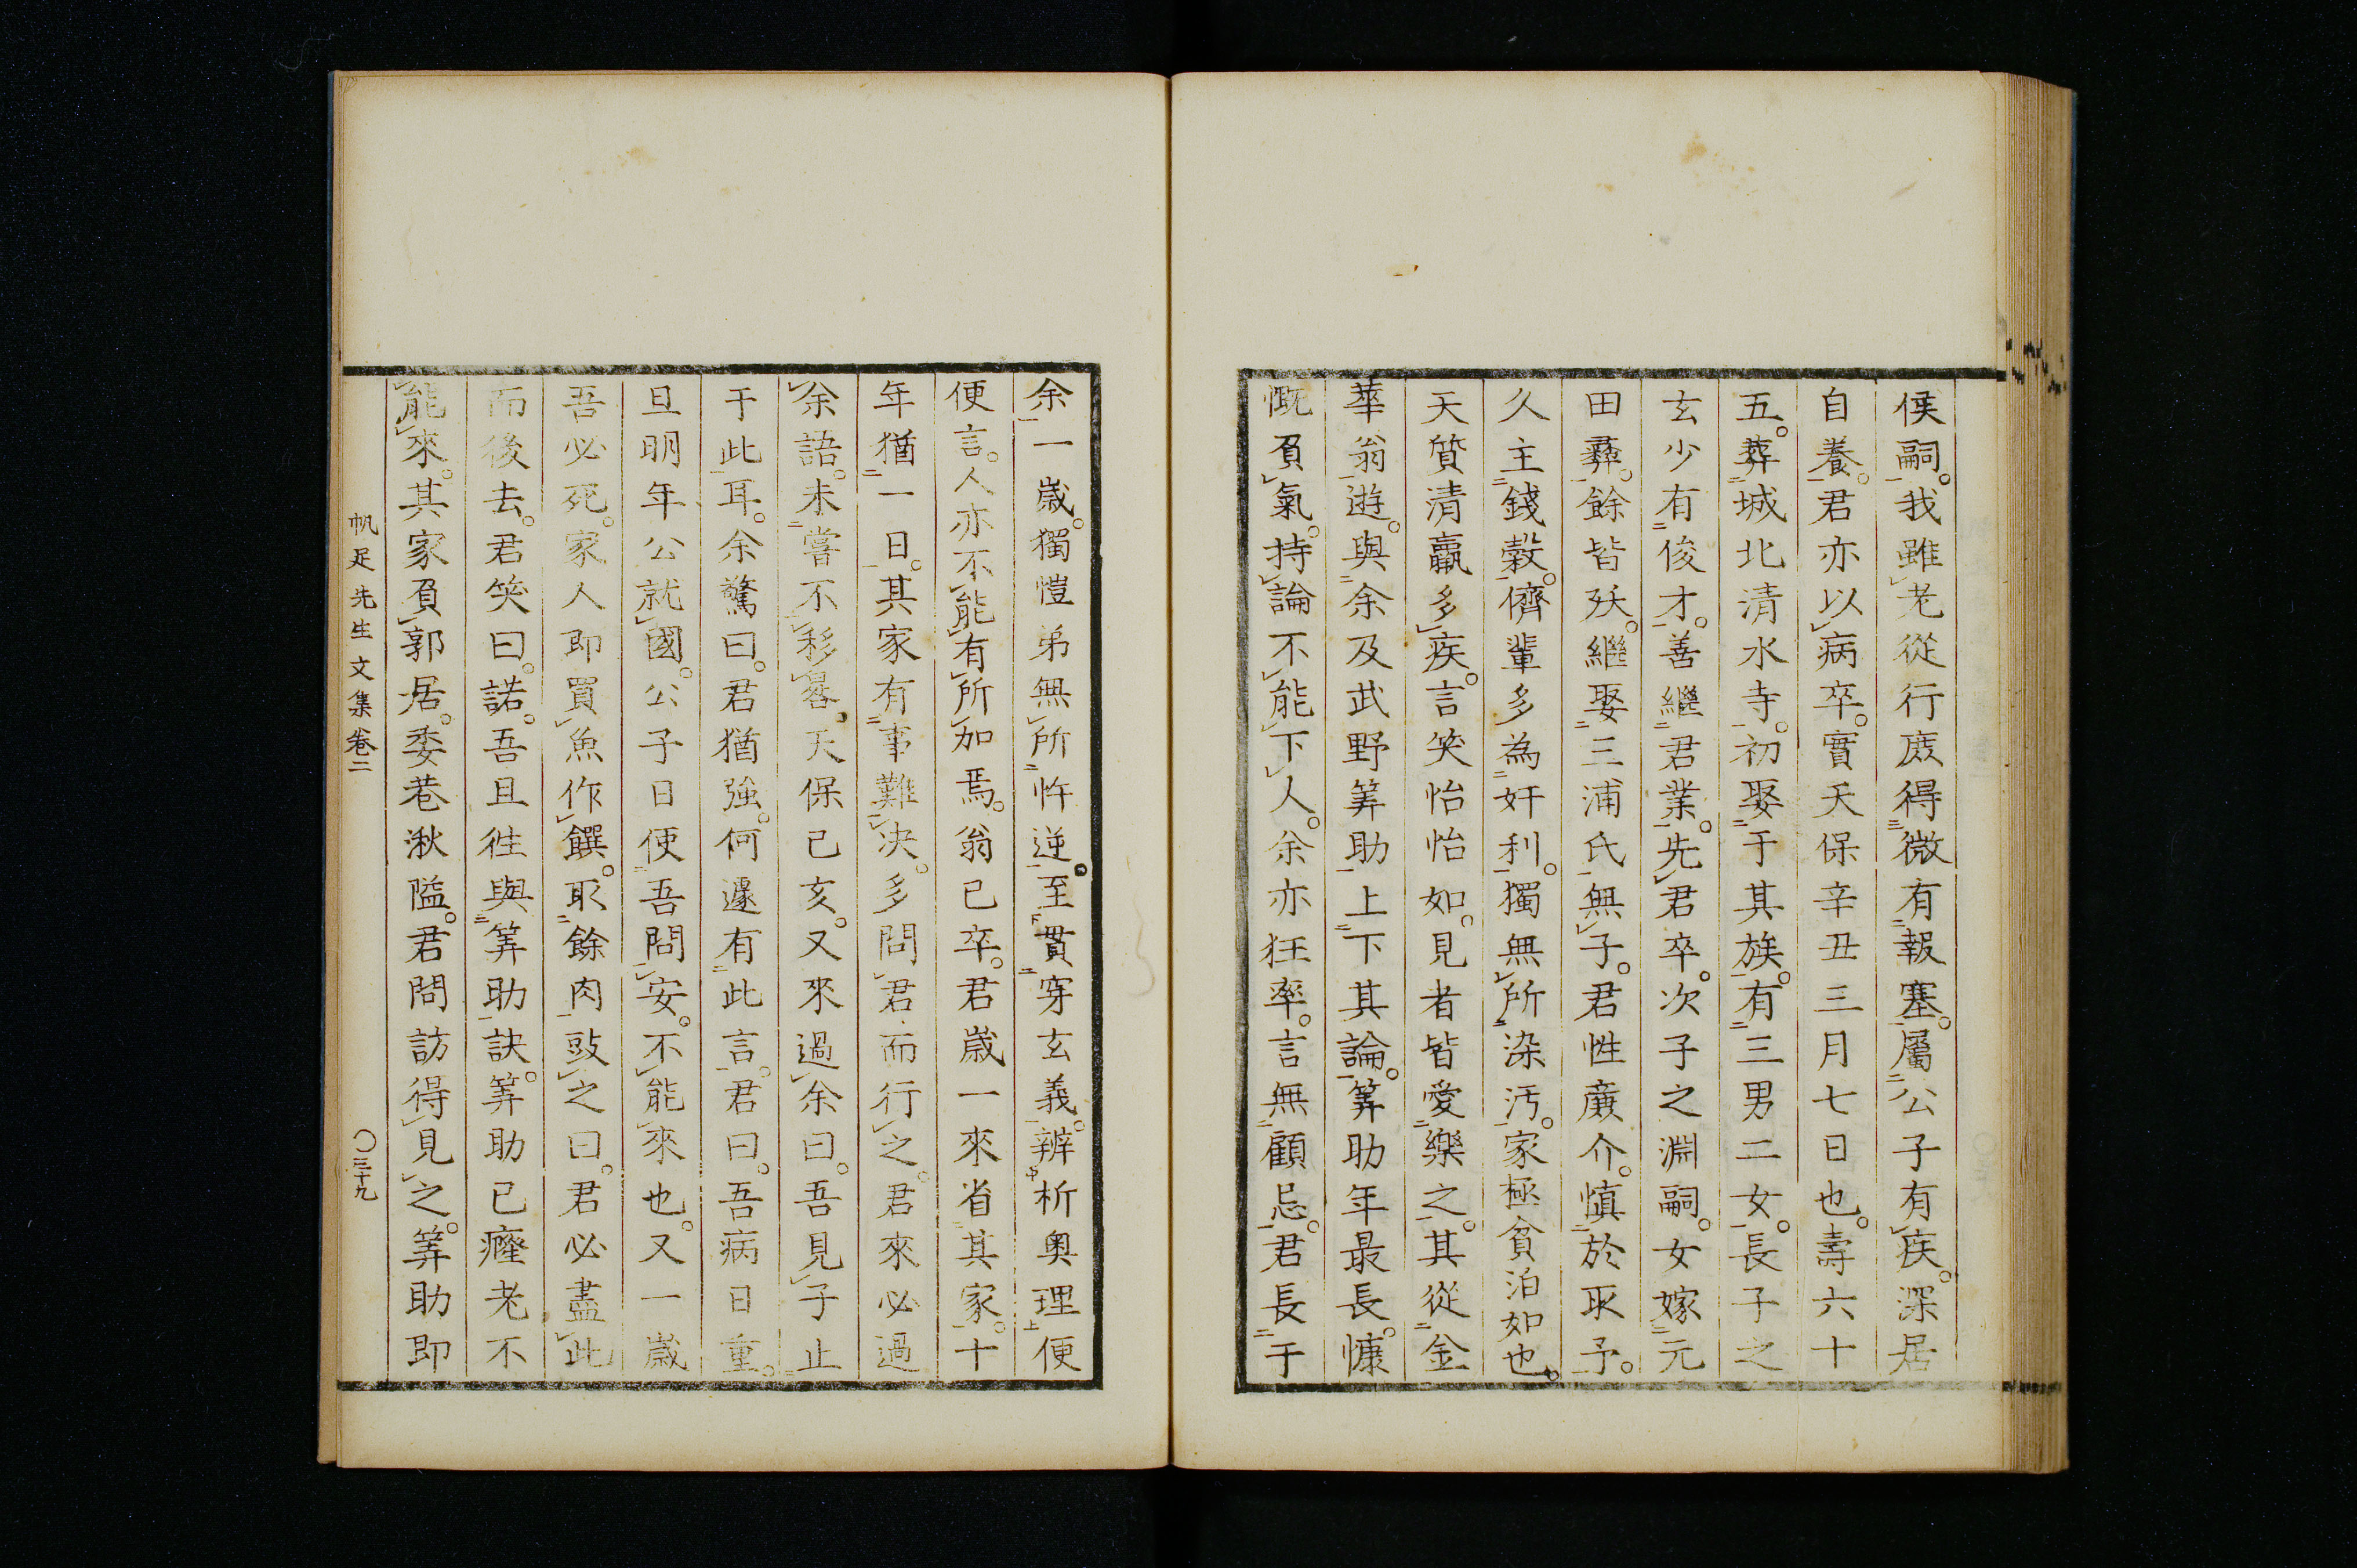 侯嗣。我雖老從行庻得微有報塞。屬公子有疾。深居
自養。君亦以病卒。實天保辛丑三月七日也。壽六十
五。葬城北清水寺。初娶于其族。有三男二女。長子之
玄少有俊才。善繼君業。先君卒。次子之淵嗣。女嫁元
田彝。餘皆殀。繼娶三浦氏無子。君性廉介。慎於取予。
久主錢穀。儕輩多為奸利。獨無所染汚。家極貧泊如也。
天質清羸多疾。言笑怡怡如。見者皆愛樂之。其從金
華翁遊。與余及武野筭助上下其論。筭助年最長。慷
慨負氣。持論不能下人。余亦狂率。言無顧忌。君長于
余一歲。獨愷弟無所忤逆。至貫穿玄義。辨析奧理便
便言。人亦不能有所加焉。翁已卒。君歲一來省其家。十
年猶一日。其家有事難決。多問君而行之。君來必過
余語。未嘗不移晷。天保己亥。又來過余曰。吾見子止
于此耳。余驚曰。君猶強。何遽有此言。君曰。吾病日重。
旦明年公就國。公子日使吾問安。不能來也。又一歲
吾必死。家人即買魚作饌。取餘肉豉之曰。君必盡此
而後去。君笑曰。諾。吾且徃與筭助訣。筭助已癃老不
能來。其家負郭居。委巷湫隘。君問訪得見之。筭助即
帆足先生文集卷二
〇三十九